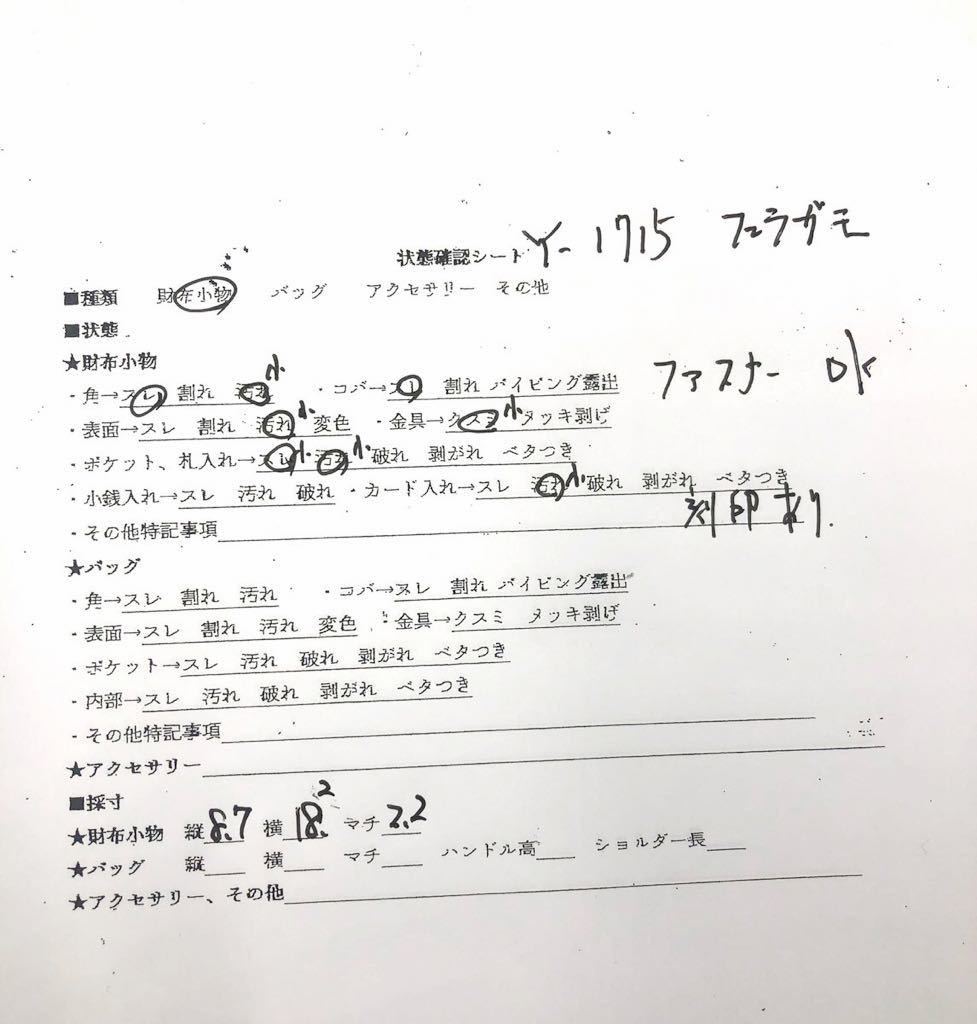 状態確認シート Y-1715 フェラガモ
■種類 財布小物 バッグ アクセサリー その他
■状態
★財布小物 ファスナー OK
・角→スレ 割れ 汚れ 小 ・コバ→スレ 割れ パイピング露出
・表面→スレ 割れ 汚れ 小 変色 ・金具→クスミ 小 メッキ剥げ
・ポケット、札入れ→スレ 小 汚れ 小 破れ 剥がれ ベタつき
・小銭入れ→スレ 汚れ 破れ ・カード入れ→スレ 汚れ 小 破れ 剥がれ ベタつき
・その他特記事項 刻印あり.
★バッグ
・角→スレ 割れ 汚れ ・コバ→スレ 割れ パイピング露出
・表面→スレ 割れ 汚れ 変色 ・金具→クスミ メッキ剥げ
・ポケット→スレ 汚れ 破れ 剥がれ ベタつき
・内部→スレ 汚れ 破れ 剥がれ ベタつき
・その他特記事項
★アクセサリー
■採寸
★財布小物 縦8.7 横18.2 マチ2.2
★バッグ 縦 横 マチ ハンドル高 ショルダー長
★アクセサリー、その他